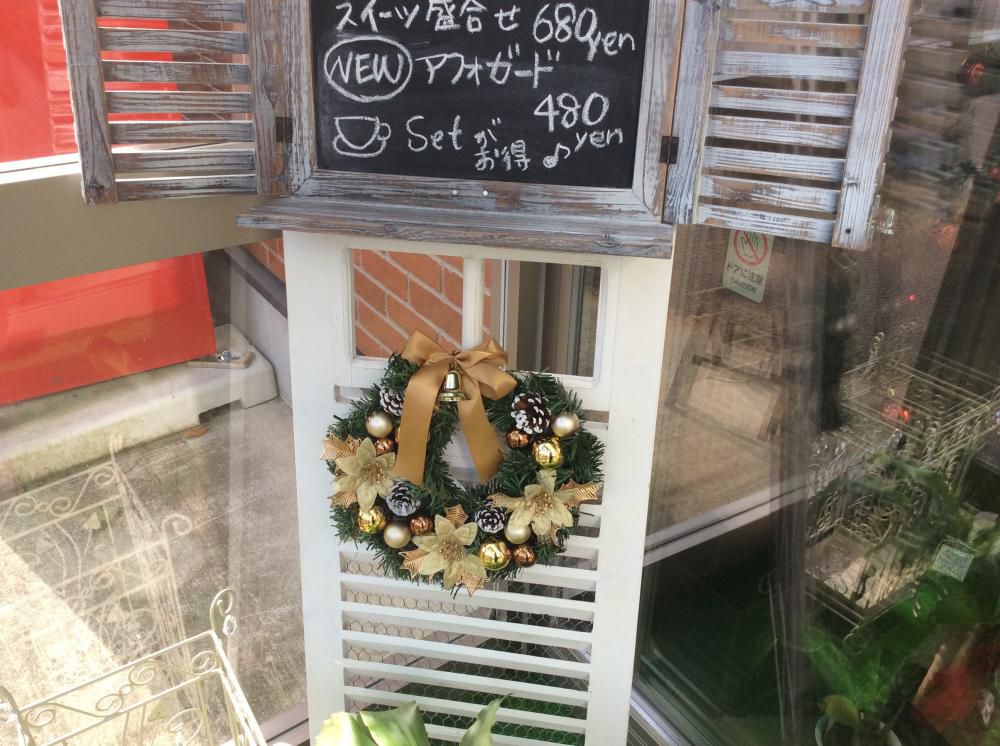 スイーツ盛合せ 680yen
NEW アフォガード
480yen
Setが
お得♪
ドアに注意
CAUTION